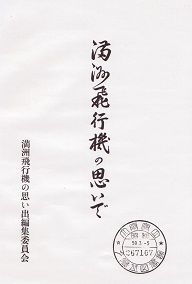 満洲飛行機の思いで
満洲飛行機の思い出編集委員会
367167